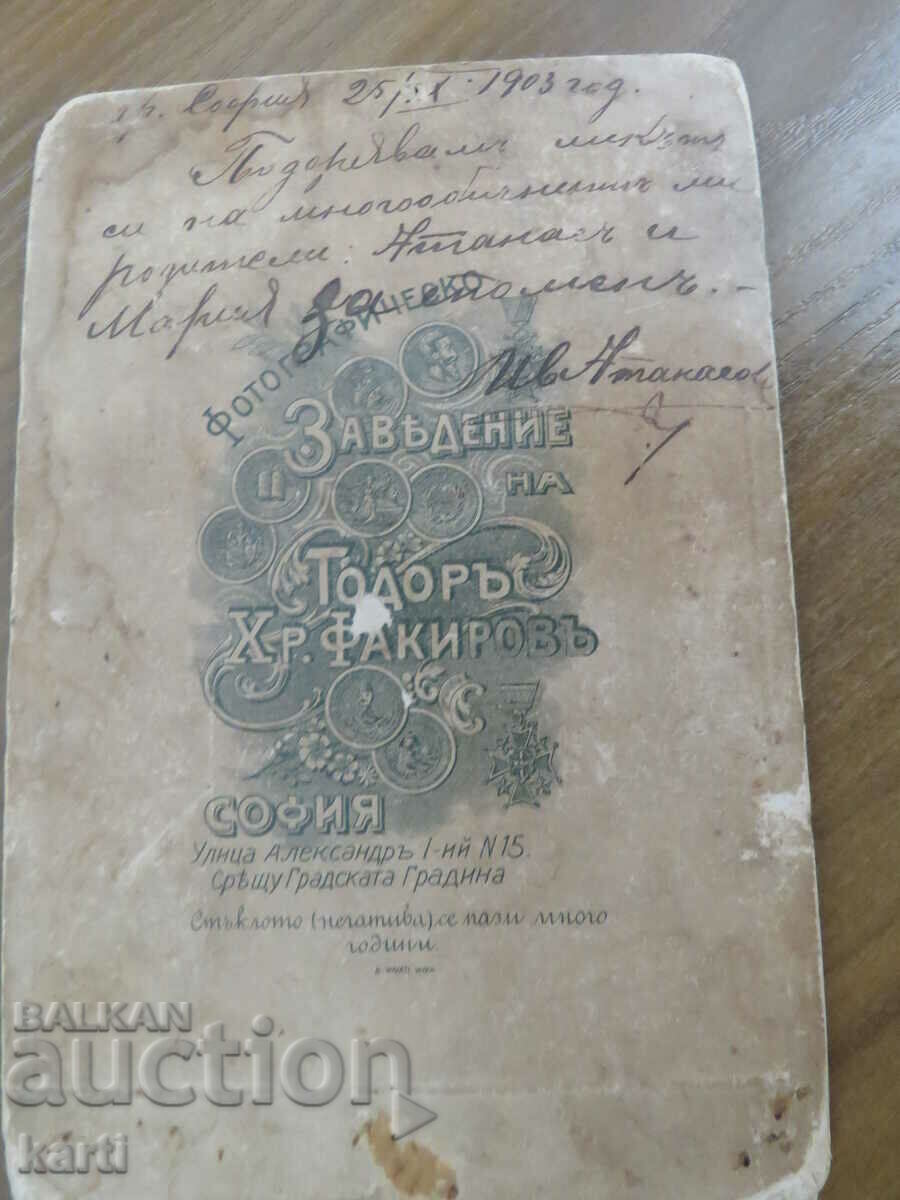 гр. София 25/IX 1903 год.
Подорявамъ ликътъ
си на многообичнитѣ ми
родители: Атанасъ и
Мария за споменъ.
Ив Атанасов
Фотографическо
Заведение
на
Тодоръ
Хр. Факировъ
София
Улица Александръ I-ий N 15.
Срѣщу Градската Градина
Стъклото (негатива) се пази много
години.
BALKAN
auction
karti